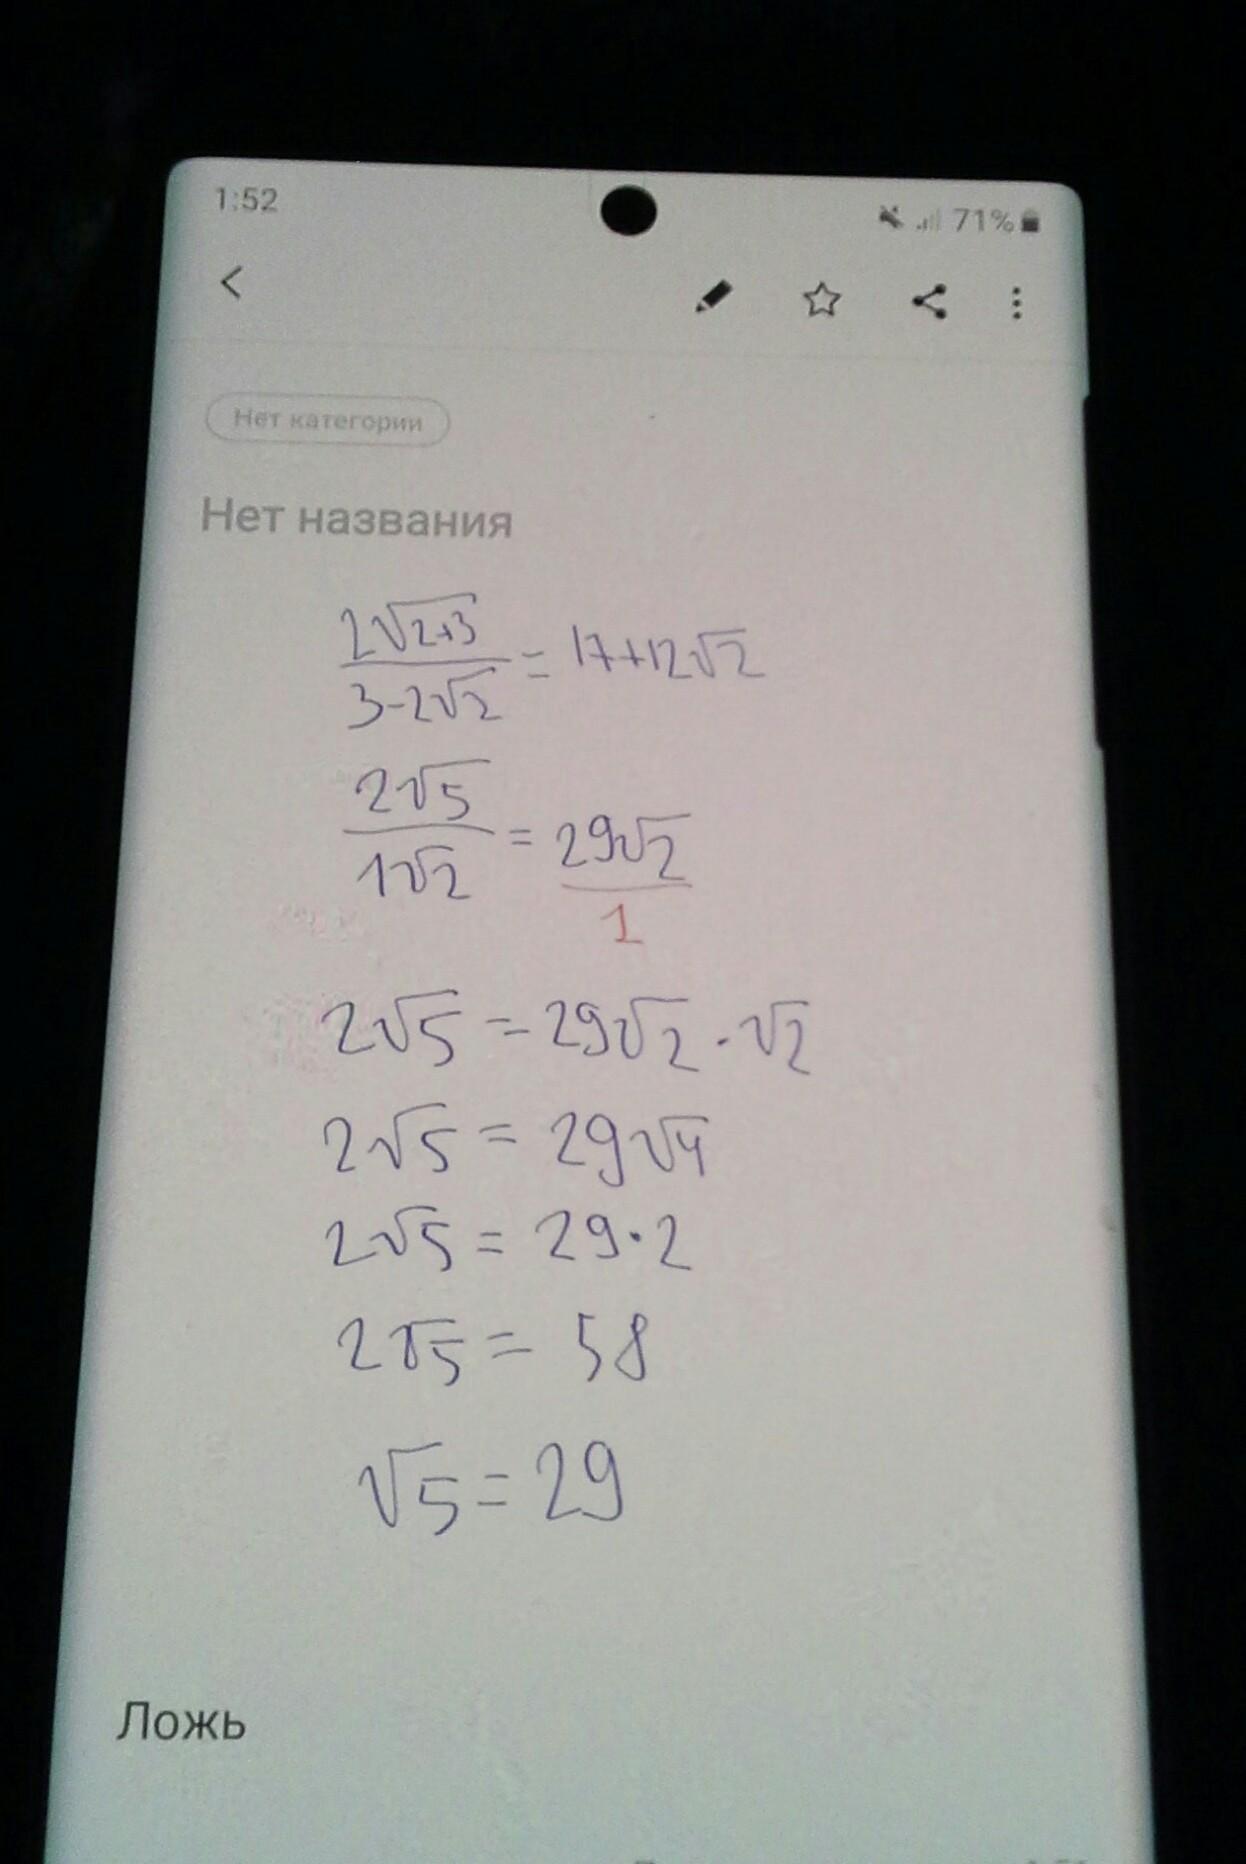 1:52 71%
Нет категории
Нет названия
2√2+3 / 3-2√2 = 17+12√2
2√5 / 1√2 = 29√2 / 1
2√5 = 29√2 · √2
2√5 = 29√4
2√5 = 29·2
2√5 = 58
√5 = 29
Ложь